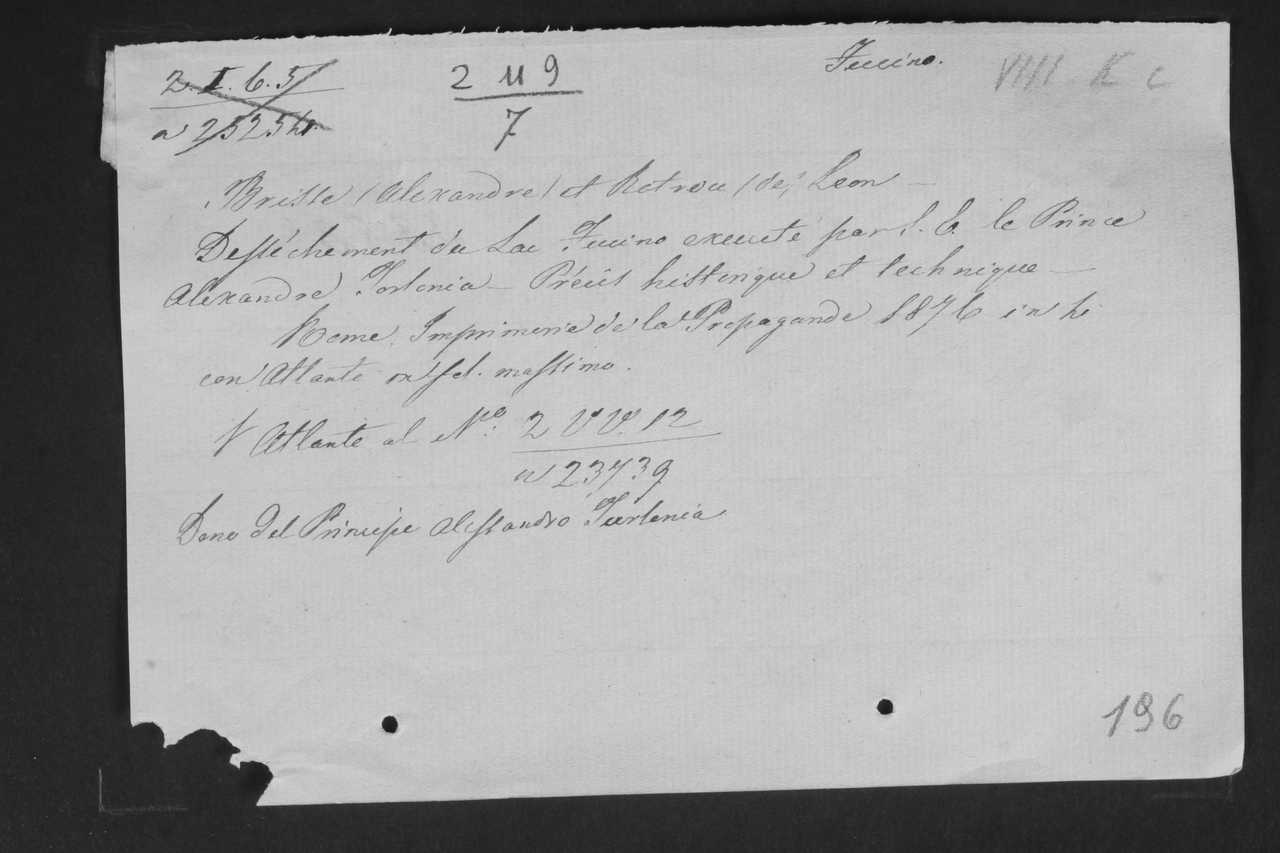 2. I. 6. 5
a 2525 bis
2 U 9
7
Fucino.
VIIII K c
Brisse (Alexandre) et Rotrou (de) Leon –
Desséchement du Lac Fucino executé par S. E. le Prince
Alexandre Torlonia – Précis historique et technique –
Rome Imprimerie de la Propagande 1876 in 4
con Atlante in fol. massimo.
l'Atlante al Nº: 2 VV. 12
a 23739
Dono del Principe Alessandro Turlonia
196